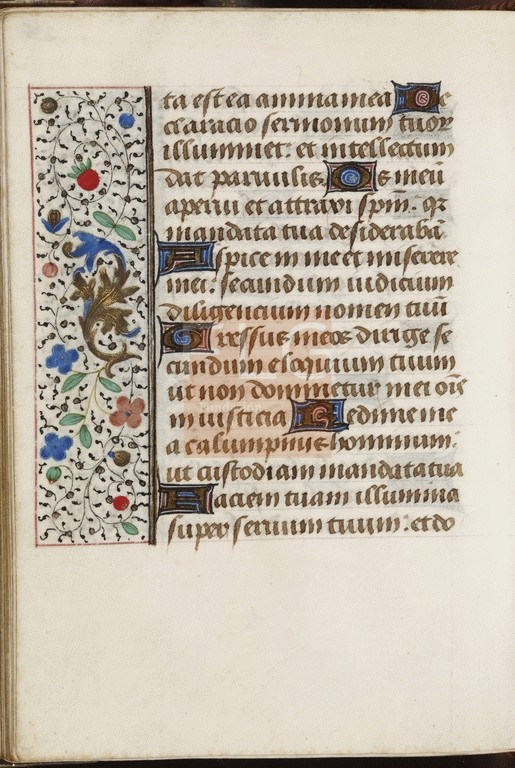 ta est ea anima mea De
claracio sermonum tuor
illuminet: et intellectum
dat paruulis Os meū
aperui et attraxi sp̄m. q̄
mandata tua desiderabā
Aspice in me et miserere
mei: secundum iudicium
diligencium nomen tuū
Gressus meos dirige se
cundum eloquium tuum
ut non dominetur mei oīs
iniusticia Redime me
a calumpniis hominum:
ut custodiam mandata tua
Faciem tuam illumina
super seruum tuum: et do